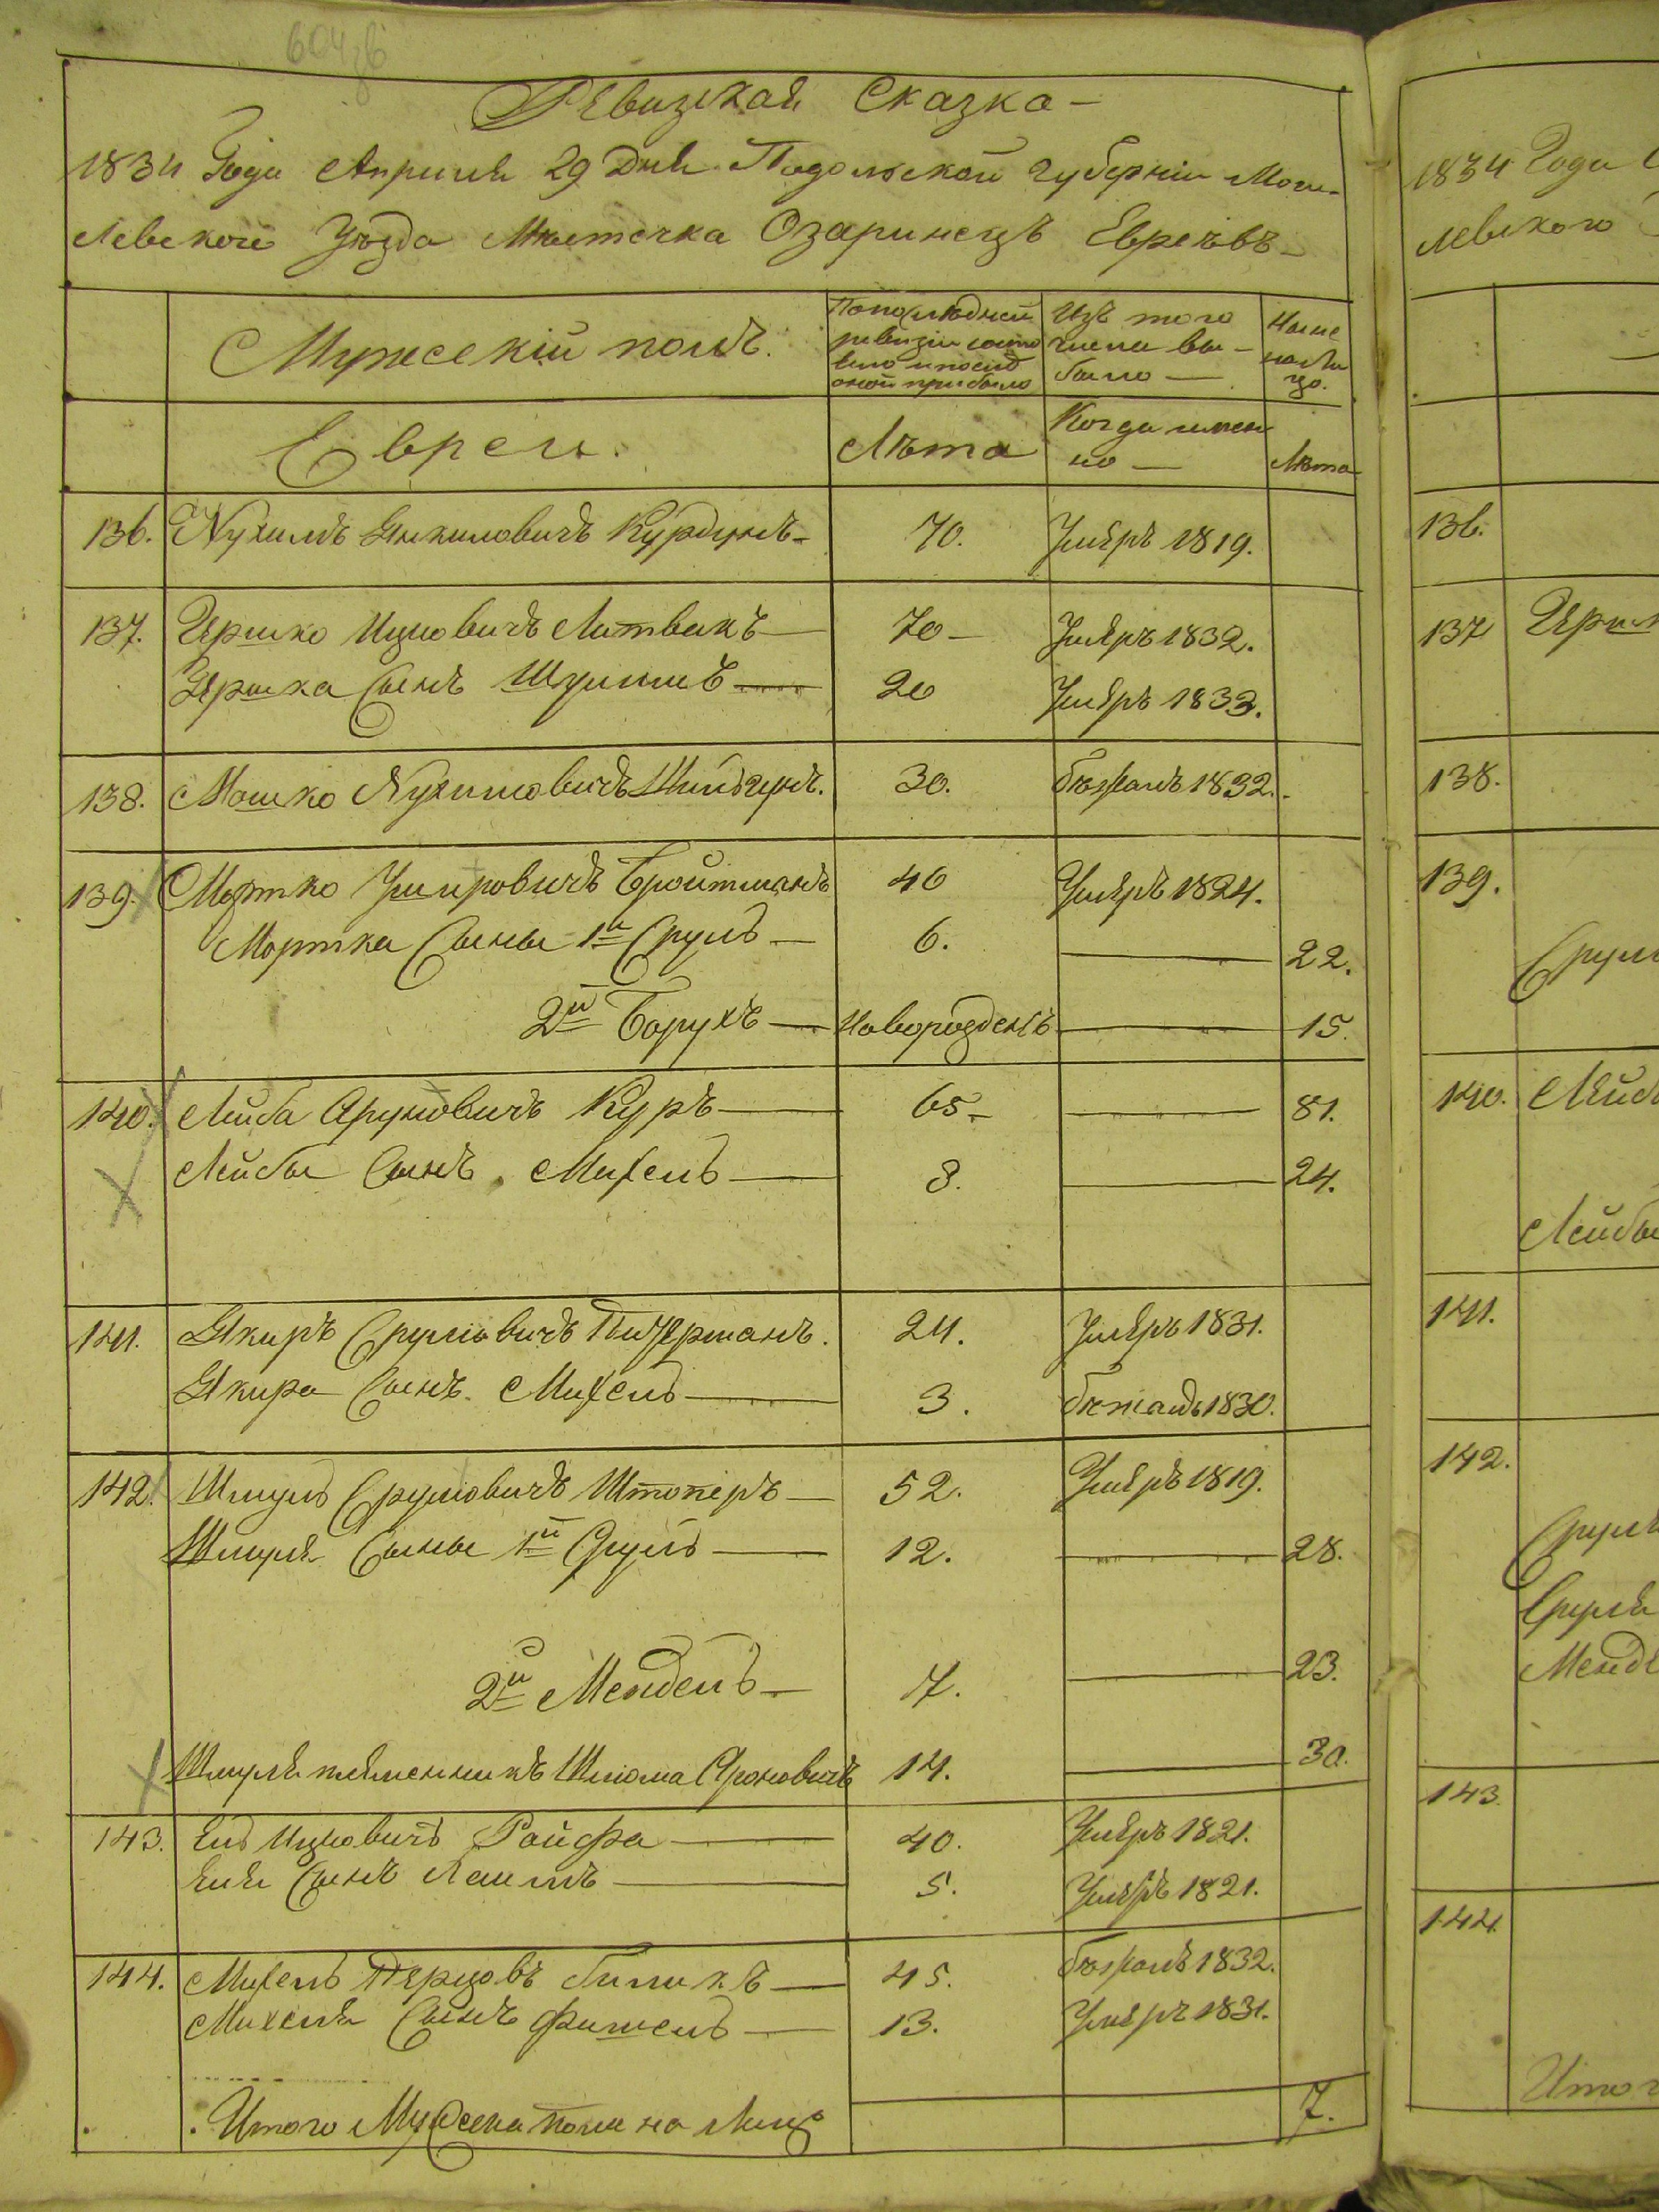 Ревизская Сказка
1834 Года Апреля 29 Дня Подольской Губернии Моги-
левского Уѣзда Мѣстечка Озаринецъ Евреѣвъ
Мужескій полъ.
По последней ревизіи состояло и после оной прибыло
Изъ того числа вы-было
Ныне на лицо.
Евреи.
Лѣта
Когда имен но
Лѣта
136. Нухимъ Янкиловичъ 70. Умѣръ 1819.
137. Гершко Ицковичъ Литвакъ 70 Умѣръ 1832.
Гершка Сынъ 20 Умѣръ 1833.
138. Мошко Нухимовичъ 30. бѣжалъ 1832.
139. Мортко Умировичъ Бройтманъ 40 Умѣръ 1824.
Мортка Сыны 1й Сруль 6. 22.
2й Борухъ новорожденъ 15.
140. Лейба Аруновичъ Куръ 65 81.
Лейбы Сынъ Михель 8. 24.
141. Якиръ Срулювичъ 24. Умѣръ 1831.
Якира Сынъ Михель 3. бежалъ 1830.
142. Шмуль Срулювичъ Штоперъ 52. Умѣръ 1819.
Шмуля Сыны 1й Сруль 12. 28.
2й Мендель 7. 23.
Шмуля племенникъ Шлома Ароновичъ 14. 30.
143. Ель Ицковичъ Райфа 40. Умѣръ 1821.
Еля Сынъ 5. Умѣръ 1821.
144. Михель Перцовъ 45. бѣжалъ 1832.
Михеля Сынъ Фишель 13. Умѣръ 1831.
Итого Мужеска пола на Лицо 7.
1834 Года
левского
136.
137 Герш
138.
139.
Срул
140. Лейб
Лейбы
141.
142.
Срул
Сруля
Менде
143.
144
Итог